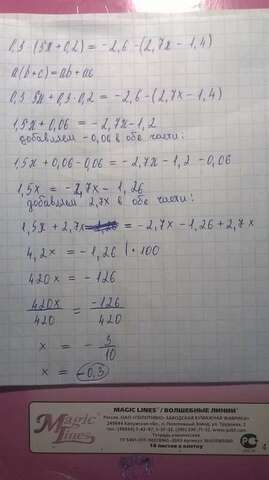 0,3 · (5x + 0,2) = -2,6 - (2,7x - 1,4)
a(b+c) = ab + ac
0,3 · 5x + 0,3 · 0,2 = -2,6 - (2,7x - 1,4)
1,5x + 0,06 = -2,7x - 1,2
добавляем -0,06 в обе части:
1,5x + 0,06 - 0,06 = -2,7x - 1,2 - 0,06
1,5x = -2,7x - 1,26
добавляем 2,7x в обе части:
1,5x + 2,7x = -2,7x - 1,26 + 2,7x
4,2x = -1,26 | · 100
420x = -126
420x/420 = -126/420
x = -3/10
x = -0,3
Magic Lines
MAGIC LINES™/ВОЛШЕБНЫЕ ЛИНИИ™
Тетрадь ученическая
18 листов в клетку